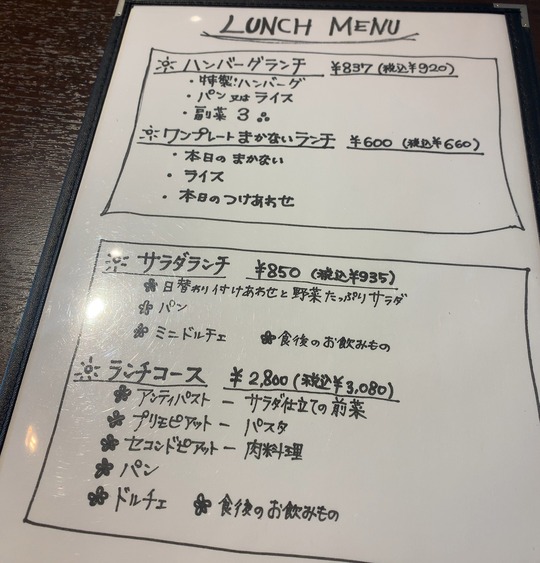 LUNCH MENU
ハンバーグランチ ¥837 (税込¥920)
・特製!ハンバーグ
・パン又はライス
・副菜3点
ワンプレートまかないランチ ¥600 (税込¥660)
・本日のまかない
・ライス
・本日のつけあわせ
サラダランチ ¥850 (税込¥935)
日替わり付けあわせと野菜たっぷりサラダ
パン
ミニドルチェ 食後のお飲みもの
ランチコース ¥2,800 (税込¥3,080)
アンティパスト ー サラダ仕立ての前菜
プリモピアット ー パスタ
セコンドピアット ー 肉料理
パン
ドルチェ 食後のお飲みもの